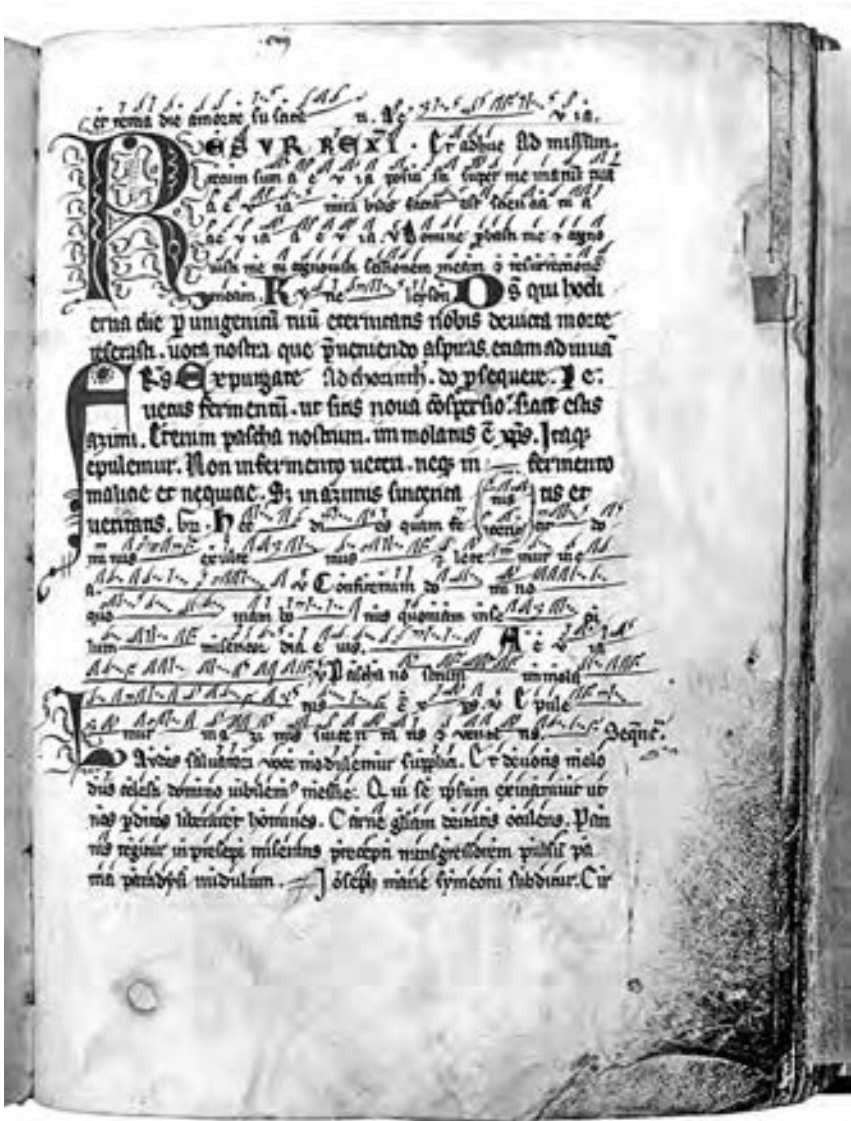 et tercia die a morte su scitet
RESVRREXI. Et adhuc Ad missam.
tecum sum a e v ia posuisti super me manū tuā
a e v ia mira bilis facta est sciencia tu a
ae v ia a e v ia. v Domine ꝓbasti me ⁊ cogno
uisti me tu cognouisti sessionem meam ⁊ resurrectionē
meam. K y rie leyson Ds̄ qui hodi
erna die ꝑ unigenitū tuū eternitatis nobis deuicta morte
reserasti. uota nostra que p̄ueniendo aspiras. etiam adiuua
Frs̄ Expurgate Ad chorinth.
uetus fermentū. ut sitis noua cōspersio. sicut estis
azimi. Etenim pascha nostrum. immolatus ē xp̄s. Itaqꝫ
epulemur. Non in fermento ueteri. neqꝫ in fermento
malicie et nequicie. Sꝫ in azimis sincerita tis et
ueritatis. Hec di es quam fe cit do
minus exulte mus ⁊ lete mur in e
a. v Confitemini do mi no
quo niam bo nus quoniam in se
lum miseri cor dia e ius. A e v ia
v Pascha no strum immola
tus ē x ps. v Epule
mur in a zi mis sinceri ta tis ⁊ verita tis. Seqn̄c.
Laudes saluatori voce modulemur supplici. Et deuotis melo
diis celesti domino iubilemꝰ messie. Qui se ipsum exinaniuit ut
nos ꝑditos liberaret homines. Carne gl̄iam deitatis occulens. Pan
nis tegitur in presepi miserans precepti transgressorem pulsū pa
tria paradysi nudulum. Ioseph marie symeoni subditur. Cir